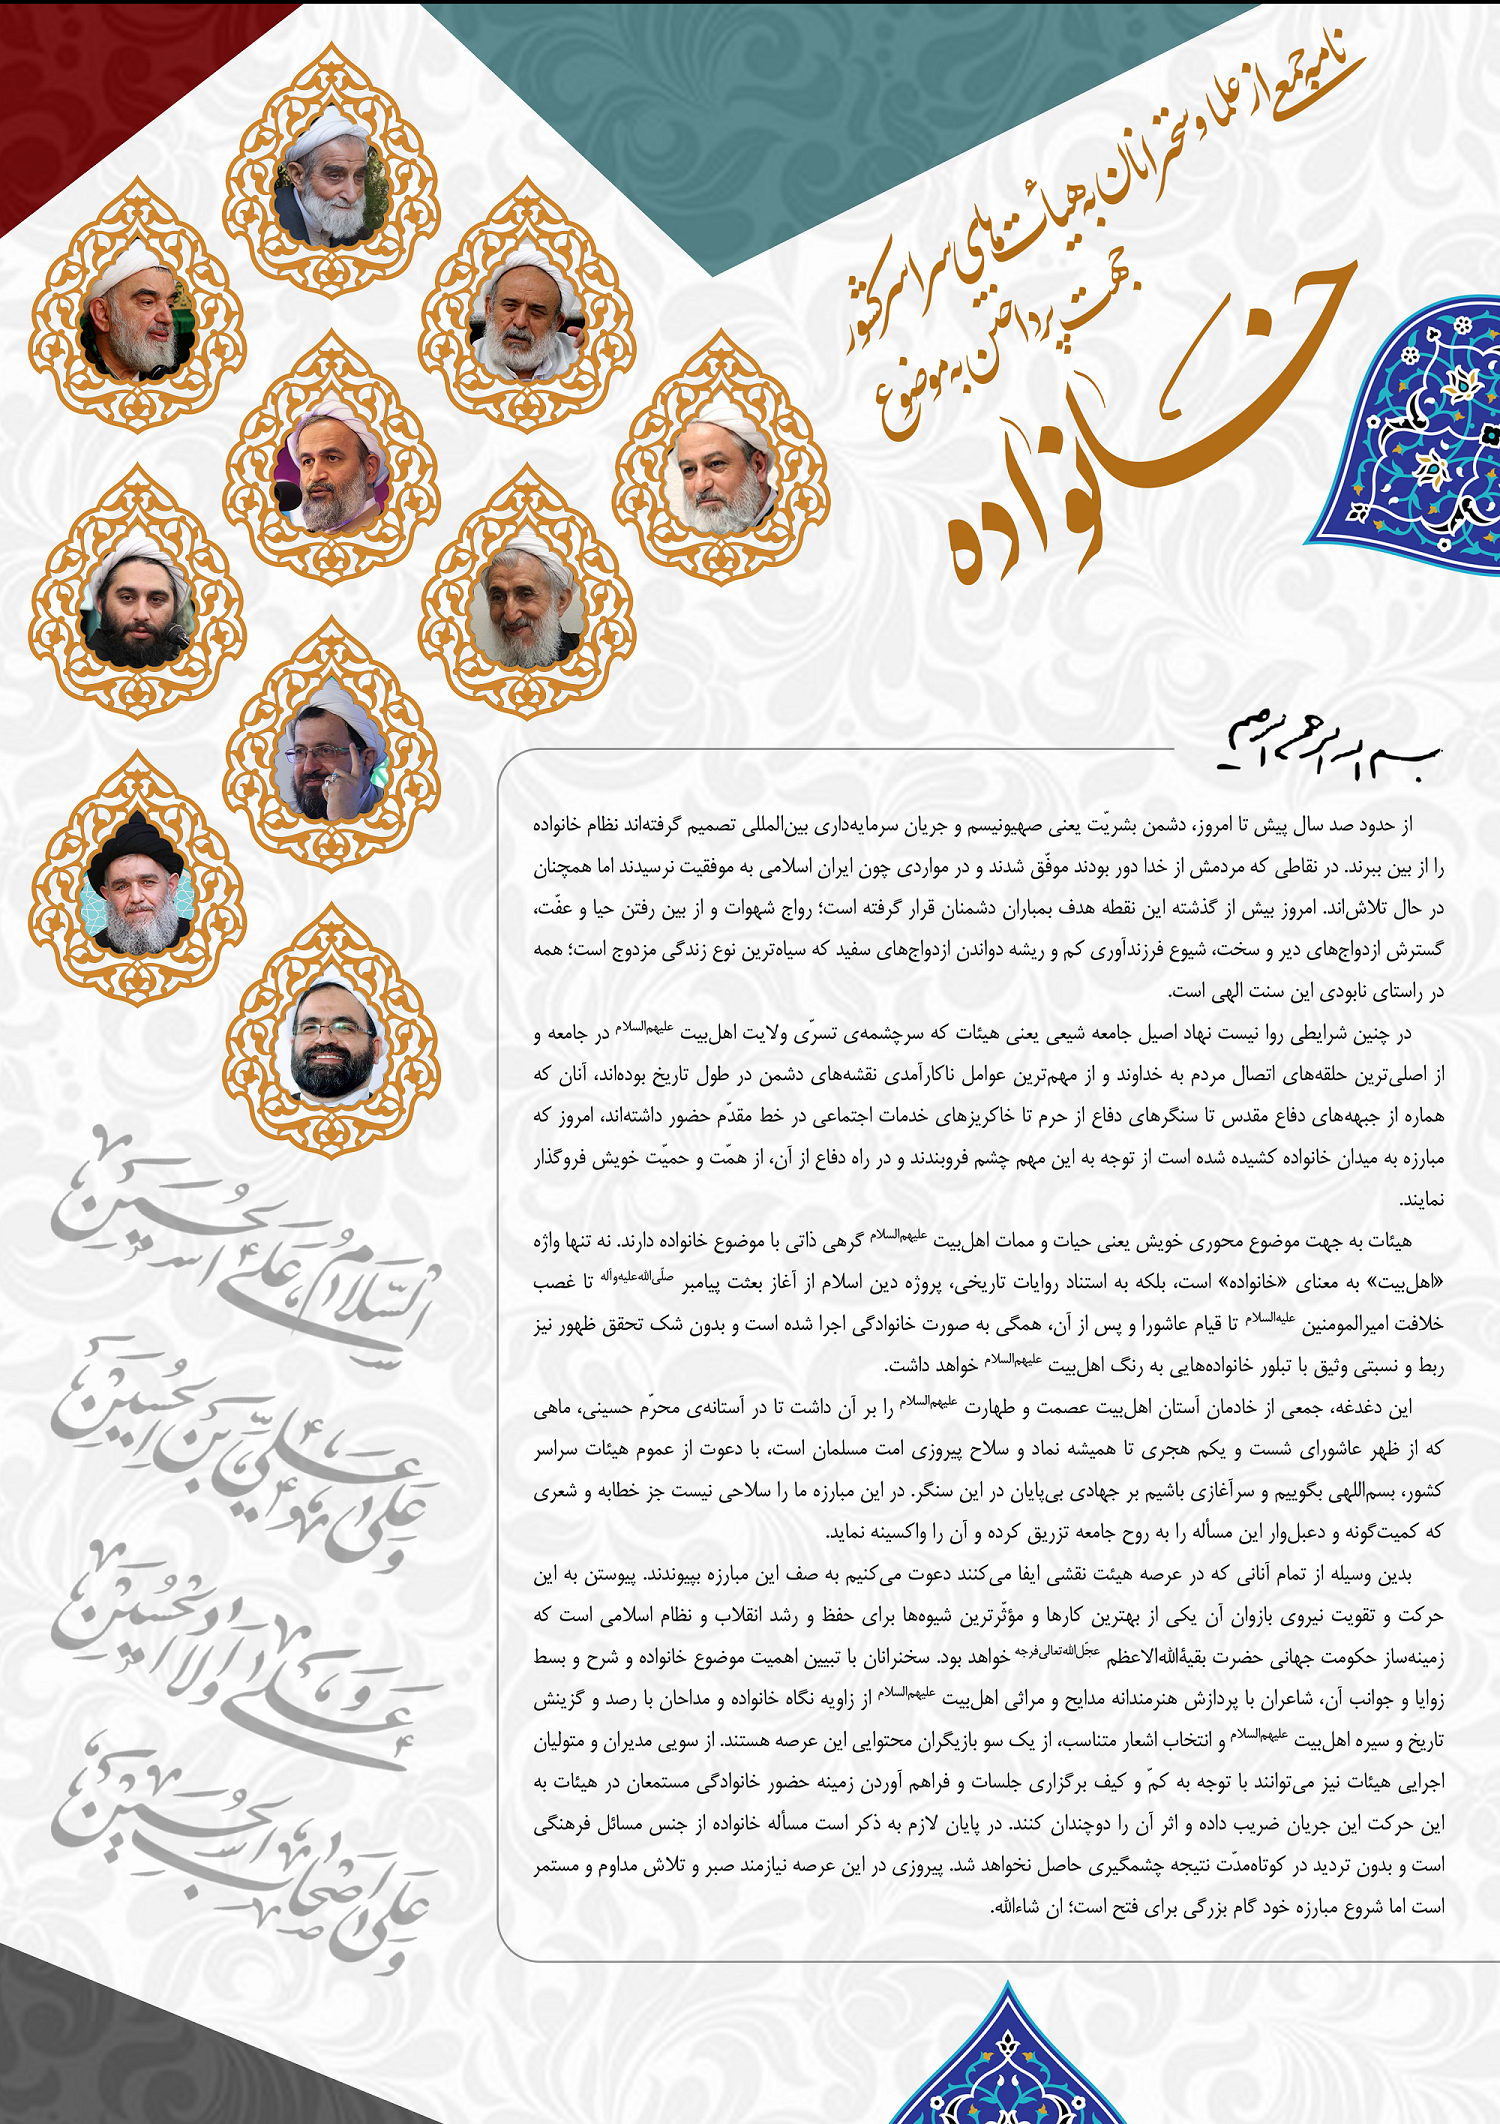 نامه جمعی از علما و سخنرانان به هیأت‌های سراسر کشور
جهت پرداختن به موضوع
خانواده
بسم الله الرحمن الرحیم
از حدود صد سال پیش تا امروز، دشمن بشریّت یعنی صهیونیسم و جریان سرمایه‌داری بین‌المللی تصمیم گرفته‌اند نظام خانواده
را از بین ببرند. در نقاطی که مردمش از خدا دور بودند موفّق شدند و در مواردی چون ایران اسلامی به موفقیت نرسیدند اما همچنان
در حال تلاش‌اند. امروز بیش از گذشته این نقطه هدف بمباران دشمنان قرار گرفته است؛ رواج شهوات و از بین رفتن حیا و عفّت،
گسترش ازدواج‌های دیر و سخت، شیوع فرزندآوری کم و ریشه دواندن ازدواج‌های سفید که سیاه‌ترین نوع زندگی مزدوج است؛ همه
در راستای نابودی این سنت الهی است.
در چنین شرایطی روا نیست نهاد اصیل جامعه شیعی یعنی هیئات که سرچشمه‌ی تسرّی ولایت اهل‌بیت علیهم‌السلام در جامعه و
از اصلی‌ترین حلقه‌های اتصال مردم به خداوند و از مهم‌ترین عوامل ناکارآمدی نقشه‌های دشمن در طول تاریخ بوده‌اند، آنان که
هماره از جبهه‌های دفاع مقدس تا سنگرهای دفاع از حرم تا خاکریزهای خدمات اجتماعی در خط مقدّم حضور داشته‌اند، امروز که
مبارزه به میدان خانواده کشیده شده است از توجه به این مهم چشم فروبندند و در راه دفاع از آن، از همّت و حمیّت خویش فروگذار
نمایند.
هیئات به جهت موضوع محوری خویش یعنی حیات و ممات اهل‌بیت علیهم‌السلام گرهی ذاتی با موضوع خانواده دارند. نه تنها واژه
«اهل‌بیت» به معنای «خانواده» است، بلکه به استناد روایات تاریخی، پروژه دین اسلام از آغاز بعثت پیامبر صلّی‌الله‌علیه‌وآله تا غصب
خلافت امیرالمومنین علیه‌السلام تا قیام عاشورا و پس از آن، همگی به صورت خانوادگی اجرا شده است و بدون شک تحقق ظهور نیز
ربط و نسبتی وثیق با تبلور خانواده‌هایی به رنگ اهل‌بیت علیهم‌السلام خواهد داشت.
این دغدغه، جمعی از خادمان آستان اهل‌بیت عصمت و طهارت علیهم‌السلام را بر آن داشت تا در آستانه‌ی محرّم حسینی، ماهی
که از ظهر عاشورای شست و یکم هجری تا همیشه نماد و سلاح پیروزی امت مسلمان است، با دعوت از عموم هیئات سراسر
کشور، بسم‌اللهی بگوییم و سرآغازی باشیم بر جهادی بی‌پایان در این سنگر. در این مبارزه ما را سلاحی نیست جز خطابه و شعری
که کمیت‌گونه و دعبل‌وار این مسأله را به روح جامعه تزریق کرده و آن را واکسینه نماید.
بدین وسیله از تمام آنانی که در عرصه هیئت نقشی ایفا می‌کنند دعوت می‌کنیم به صف این مبارزه بپیوندند. پیوستن به این
حرکت و تقویت نیروی بازوان آن یکی از بهترین کارها و مؤثّرترین شیوه‌ها برای حفظ و رشد انقلاب و نظام اسلامی است که
زمینه‌ساز حکومت جهانی حضرت بقیةالله‌الاعظم عجّل‌الله‌تعالی‌فرجه خواهد بود. سخنرانان با تبیین اهمیت موضوع خانواده و شرح و بسط
زوایا و جوانب آن، شاعران با پردازش هنرمندانه مدایح و مراثی اهل‌بیت علیهم‌السلام از زاویه نگاه خانواده و مداحان با رصد و گزینش
تاریخ و سیره اهل‌بیت علیهم‌السلام و انتخاب اشعار متناسب، از یک سو بازیگران محتوایی این عرصه هستند. از سویی مدیران و متولیان
اجرایی هیئات نیز می‌توانند با توجه به کمّ و کیف برگزاری جلسات و فراهم آوردن زمینه حضور خانوادگی مستمعان در هیئات به
این حرکت این جریان ضریب داده و اثر آن را دوچندان کنند. در پایان لازم به ذکر است مسأله خانواده از جنس مسائل فرهنگی
است و بدون تردید در کوتاه‌مدّت نتیجه چشمگیری حاصل نخواهد شد. پیروزی در این عرصه نیازمند صبر و تلاش مداوم و مستمر
است اما شروع مبارزه خود گام بزرگی برای فتح است؛ ان شاءالله.
السلام علی الحسین
و علی علی بن الحسین
و علی اولاد الحسین
و علی اصحاب الحسین